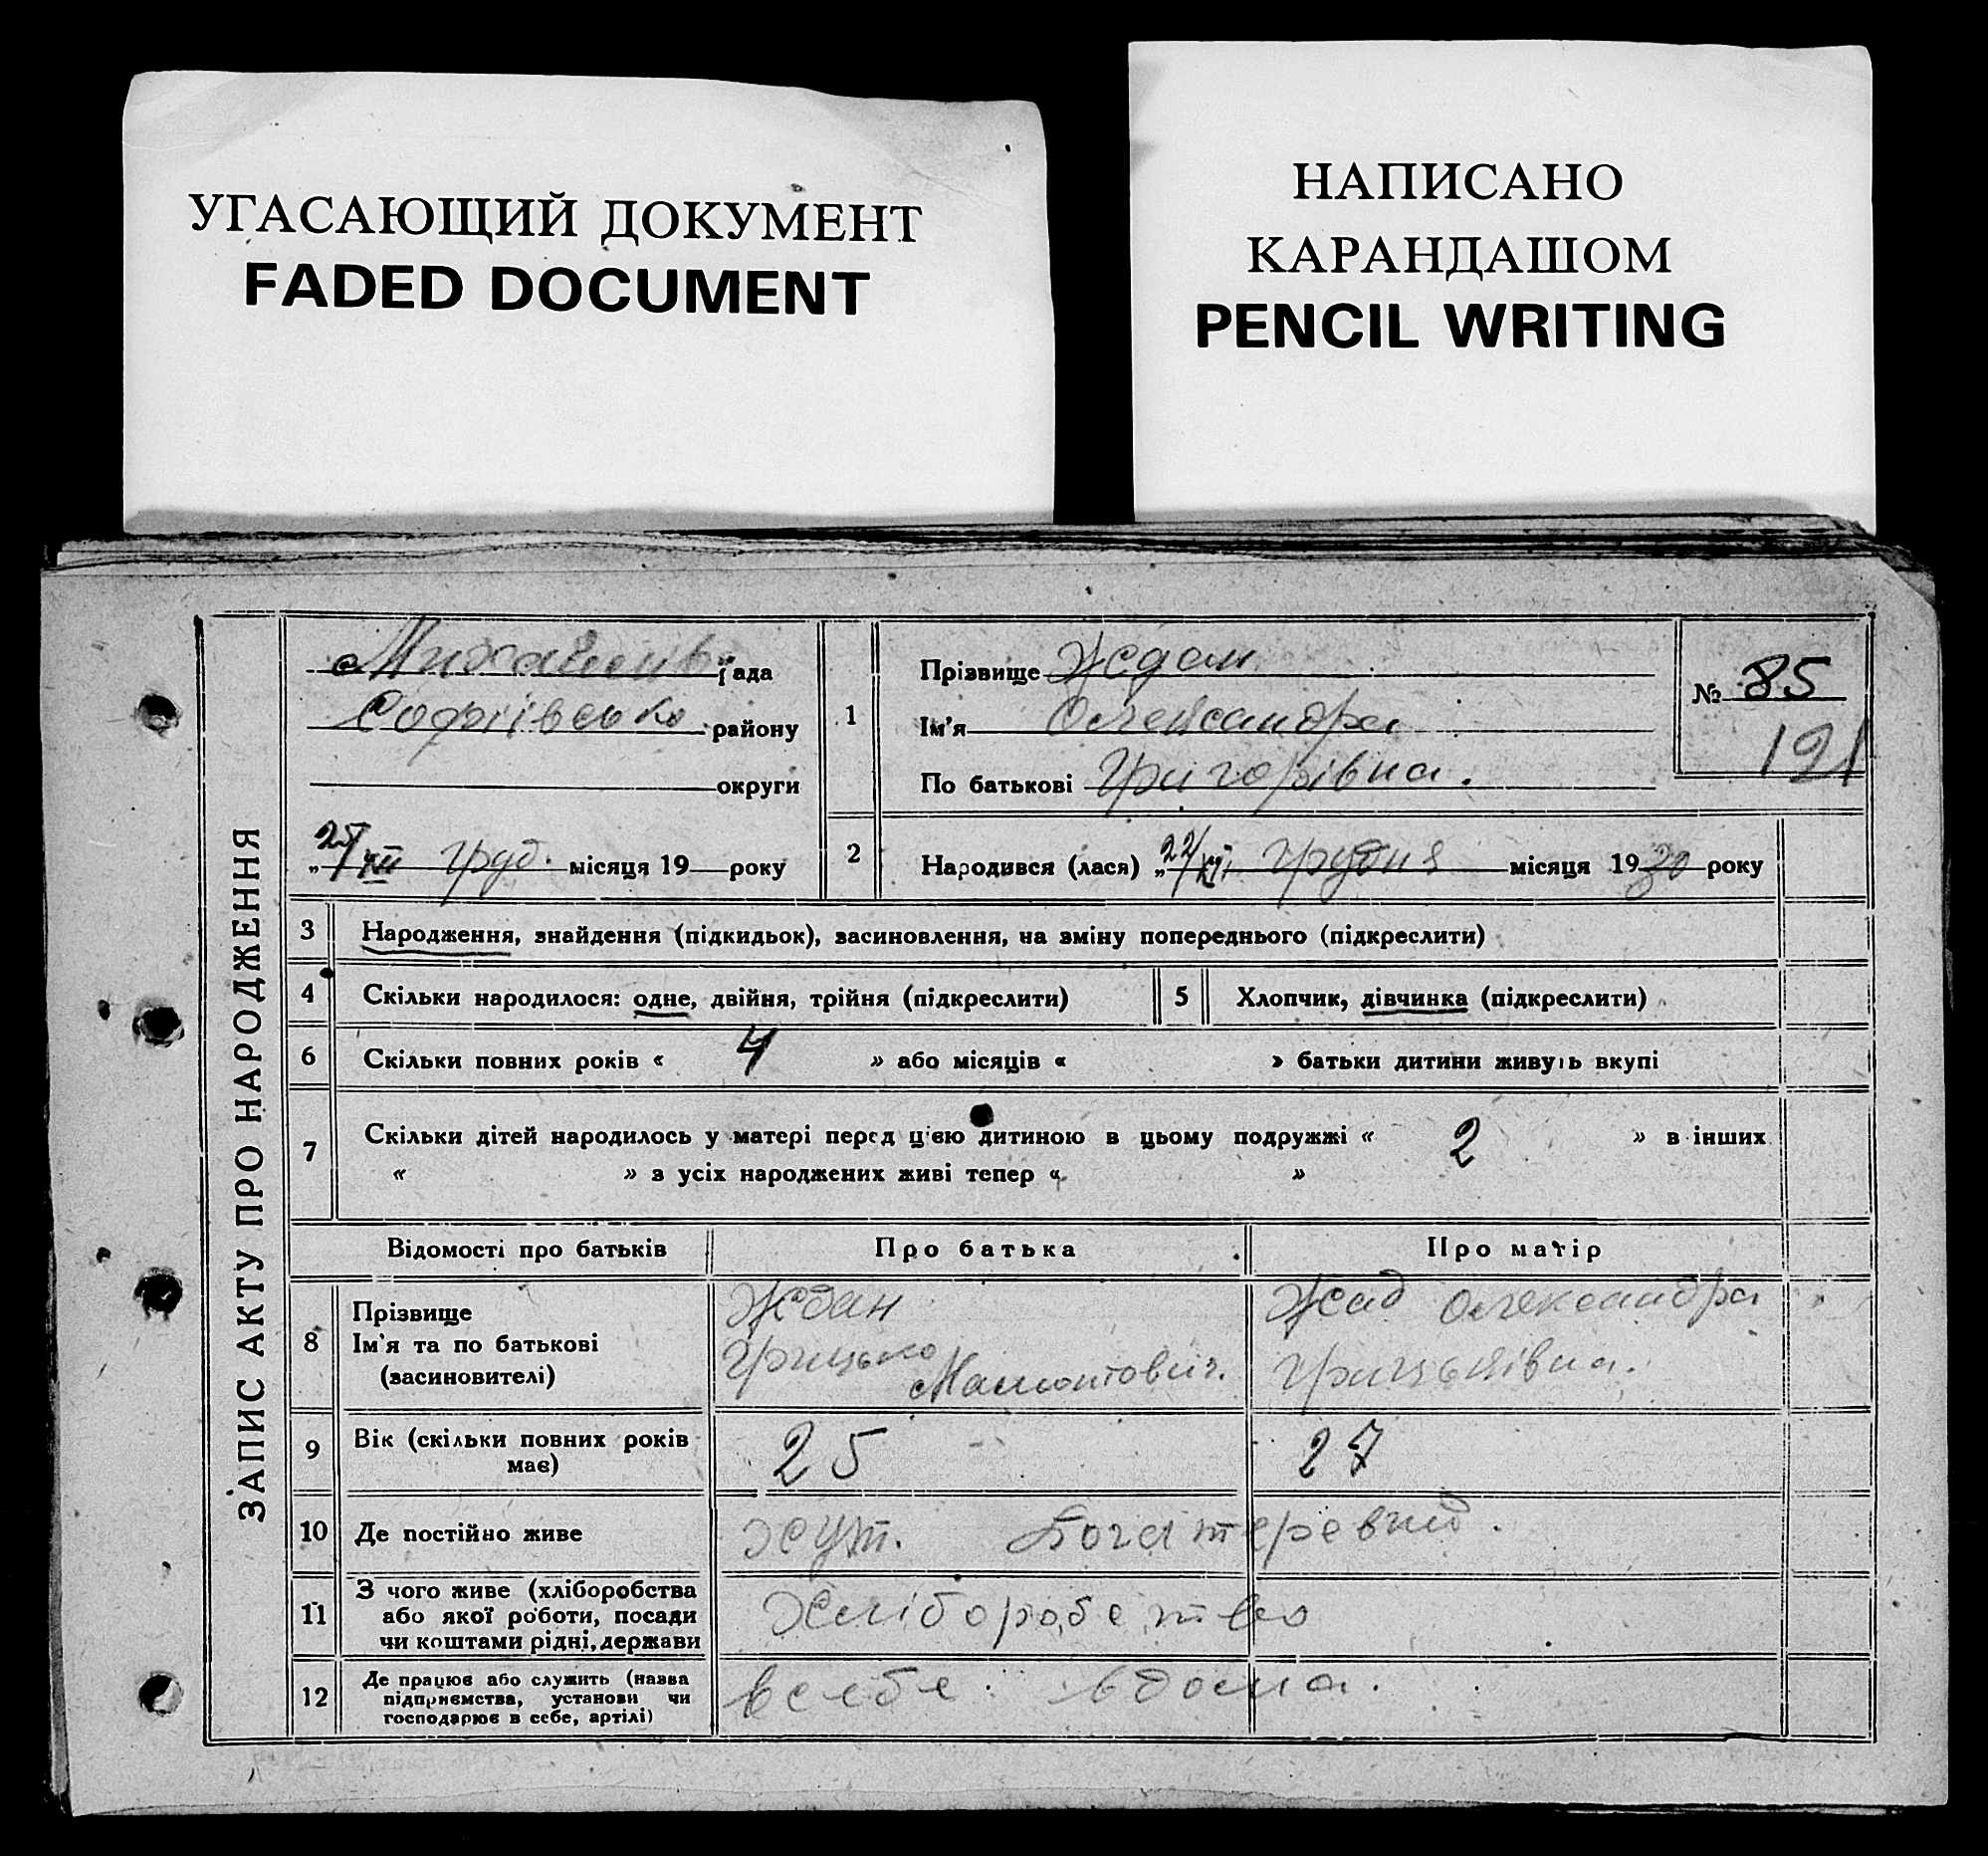 УГАСАЮЩИЙ ДОКУМЕНТ
FADED DOCUMENT
НАПИСАНО
КАРАНДАШОМ
PENCIL WRITING
ЗАПИС АКТУ ПРО НАРОДЖЕННЯ
рада
Софіївсько району
округи
25/XII груд. місяця 19 року
1
Прізвище Ждан
Ім'я Олександра
По батькові Григорівна.
№ 85
191
2
Народився (лася) „22/XII грудня місяця 1930 року
3 Народження, знайдення (підкидьок), засиновлення, на зміну попереднього (підкреслити)
4 Скільки народилося: одне, двійня, трійня (підкреслити)
5 Хлопчик, дівчинка (підкреслити)
6 Скільки повних років « 4 » або місяців « » батьки дитини живуть вкупі
7 Скільки дітей народилось у матері перед цією дитиною в цьому подружжі « 2 » в інших
« » з усіх народжених живі тепер « »
Відомості про батьків Про батька Про матір
8 Прізвище
Ім'я та по батькові
(засиновителі)
Ждан
Грицько
Мамонтович.
Олександра
Грицьківна.
9 Вік (скільки повних років
має)
25 27
10 Де постійно живе хут.
11 З чого живе (хліборобства
або якої роботи, посади
чи коштами рідні, держави
Хліборобство
12 Де працює або служить (назва
підприємства, установи чи
господарює в себе, артілі)
в себе вдома.